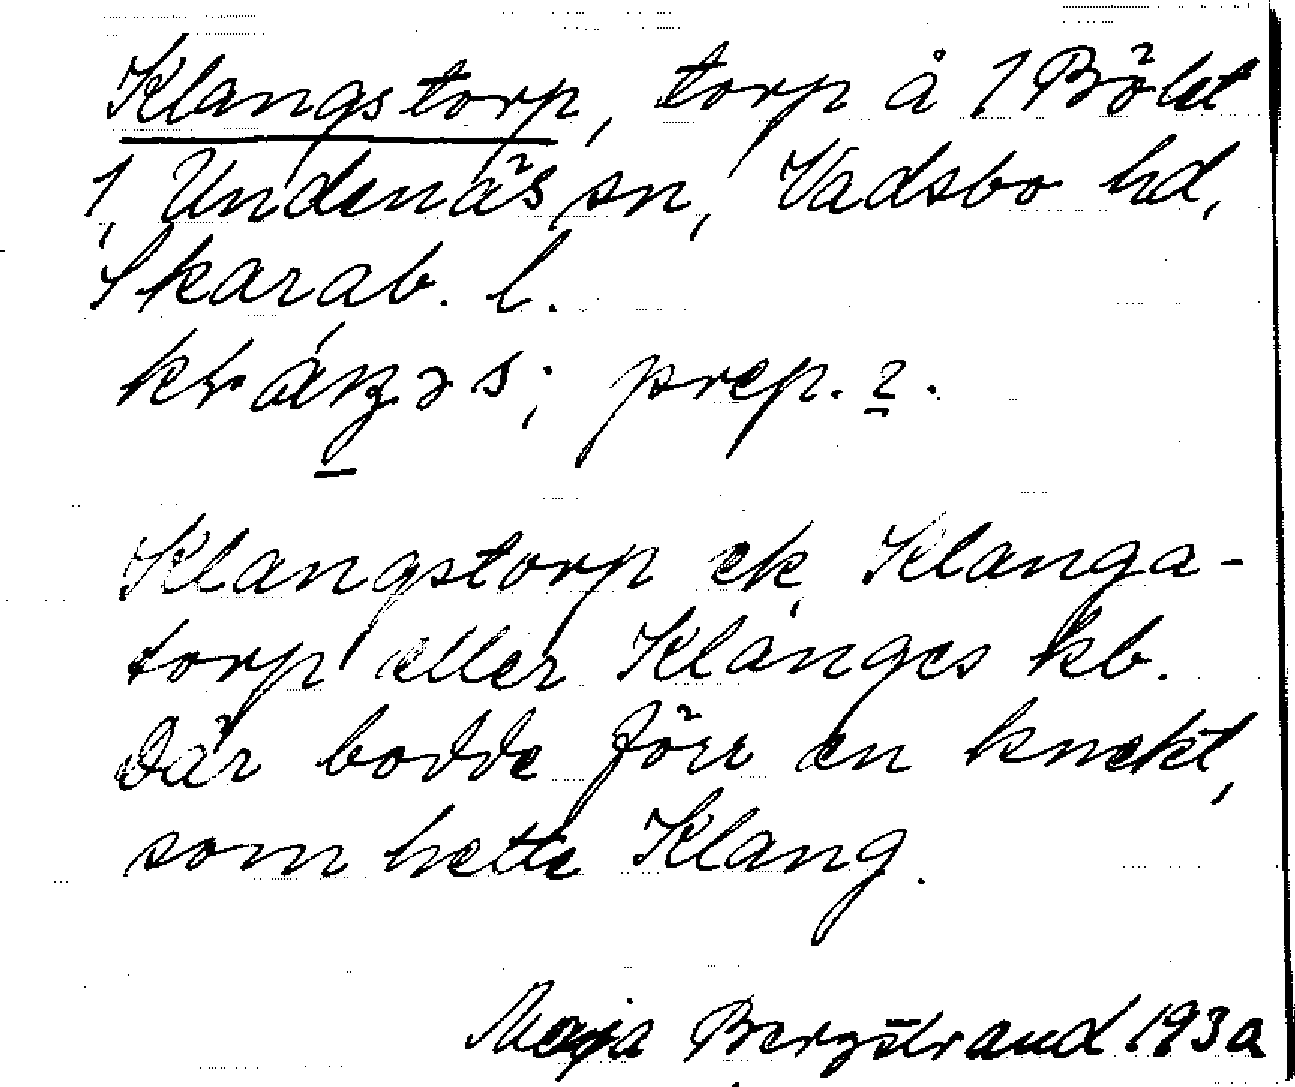 Klangstorp, torp å 1 Bölet
1, Undenäs sn, Vadsbo hd,
Skarab. l.
prep. 2.
Klangstorp ek, Klanga-
torp eller Klanges kb.
Där bodde förr en knekt,
som hette Klang.
Maja Bergstrand 1930